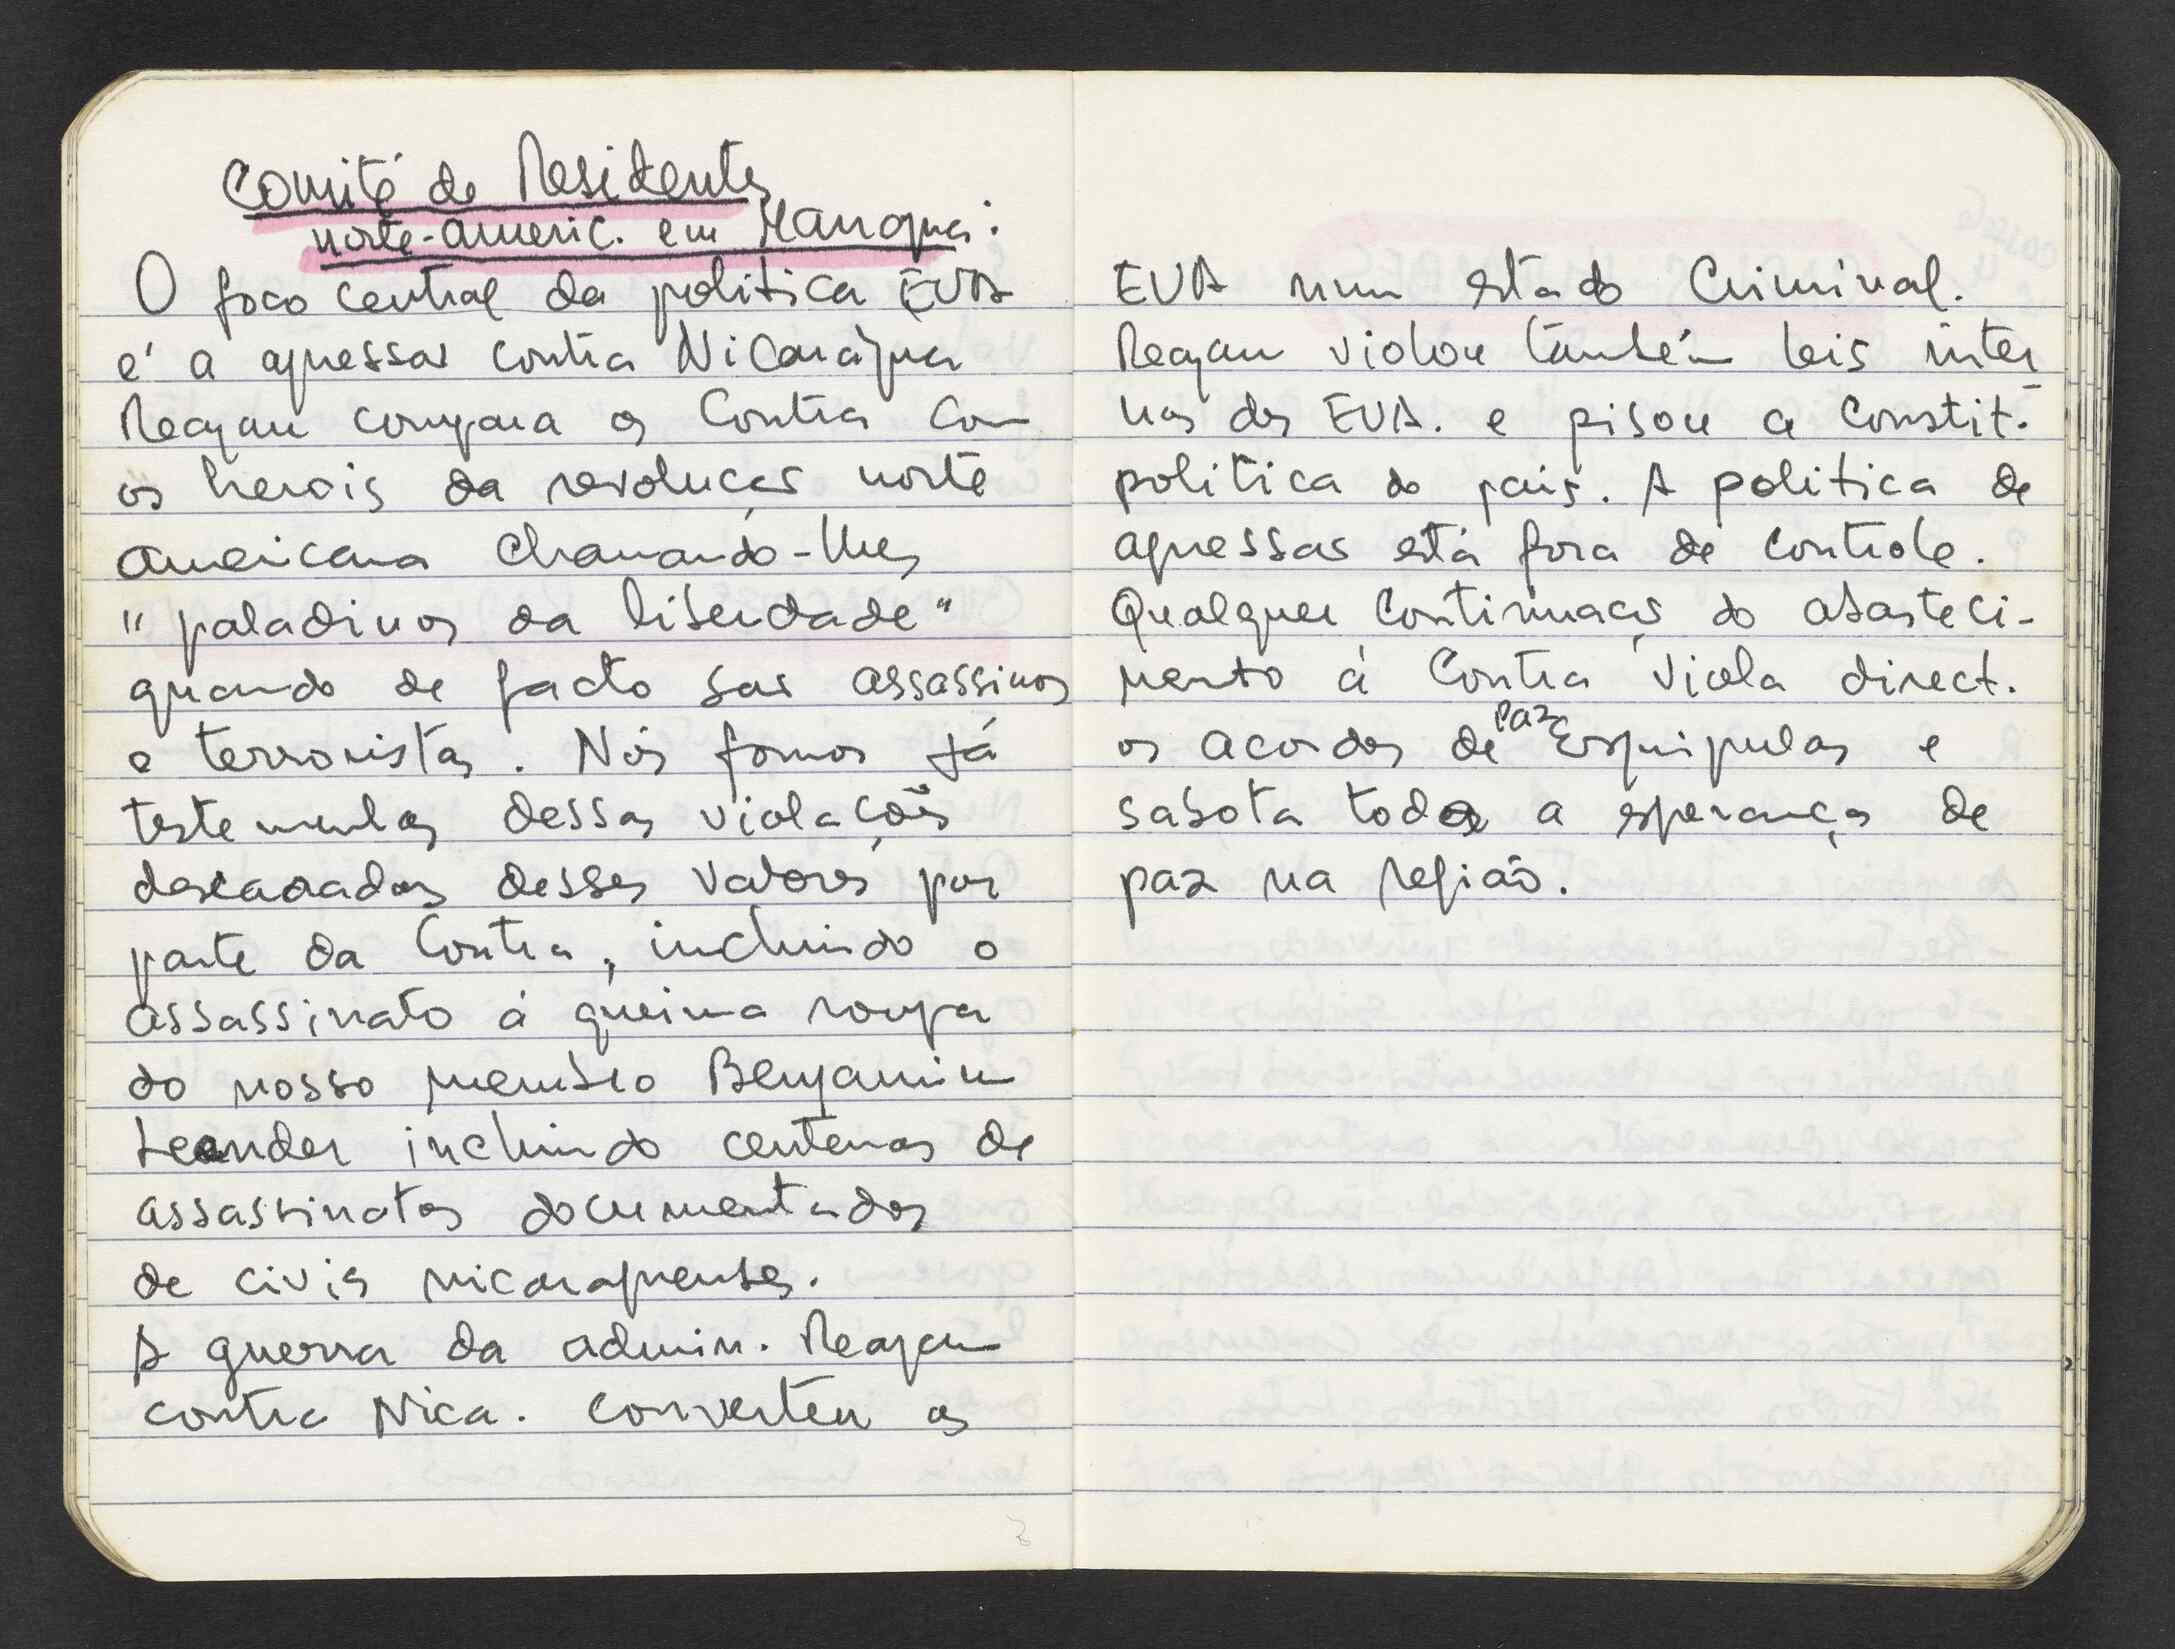 Comité de Residentes
norte-americ. em Managua:
O foco central da politica EUA
é a agressão contra Nicarágua
Reagan compara os Contra com
os herois da revolução norte
americana chamando-lhes
"paladinos da liberdade"
quando de facto são assassinos
e terroristas. Nós fomos já
testemunhas dessas violações
descaradas desses valores por
parte da Contra, incluindo o
assassinato à queima roupa
do nosso membro Benjamin
Leander incluindo centenas de
assassinatos documentados
de civis nicaraguenses.
A guerra da admin. Reagan
contra Nica. converteu os
EUA num estado Criminal.
Reagan violou também leis inter
nas dos EUA. e pisou a Constit.
politica do pais. A politica de
agressão está fora de controle.
Qualquer continuação do abasteci-
mento à Contra viola direct.
os acordos de paz Esquipulas e
sabota toda a esperança de
paz na região.